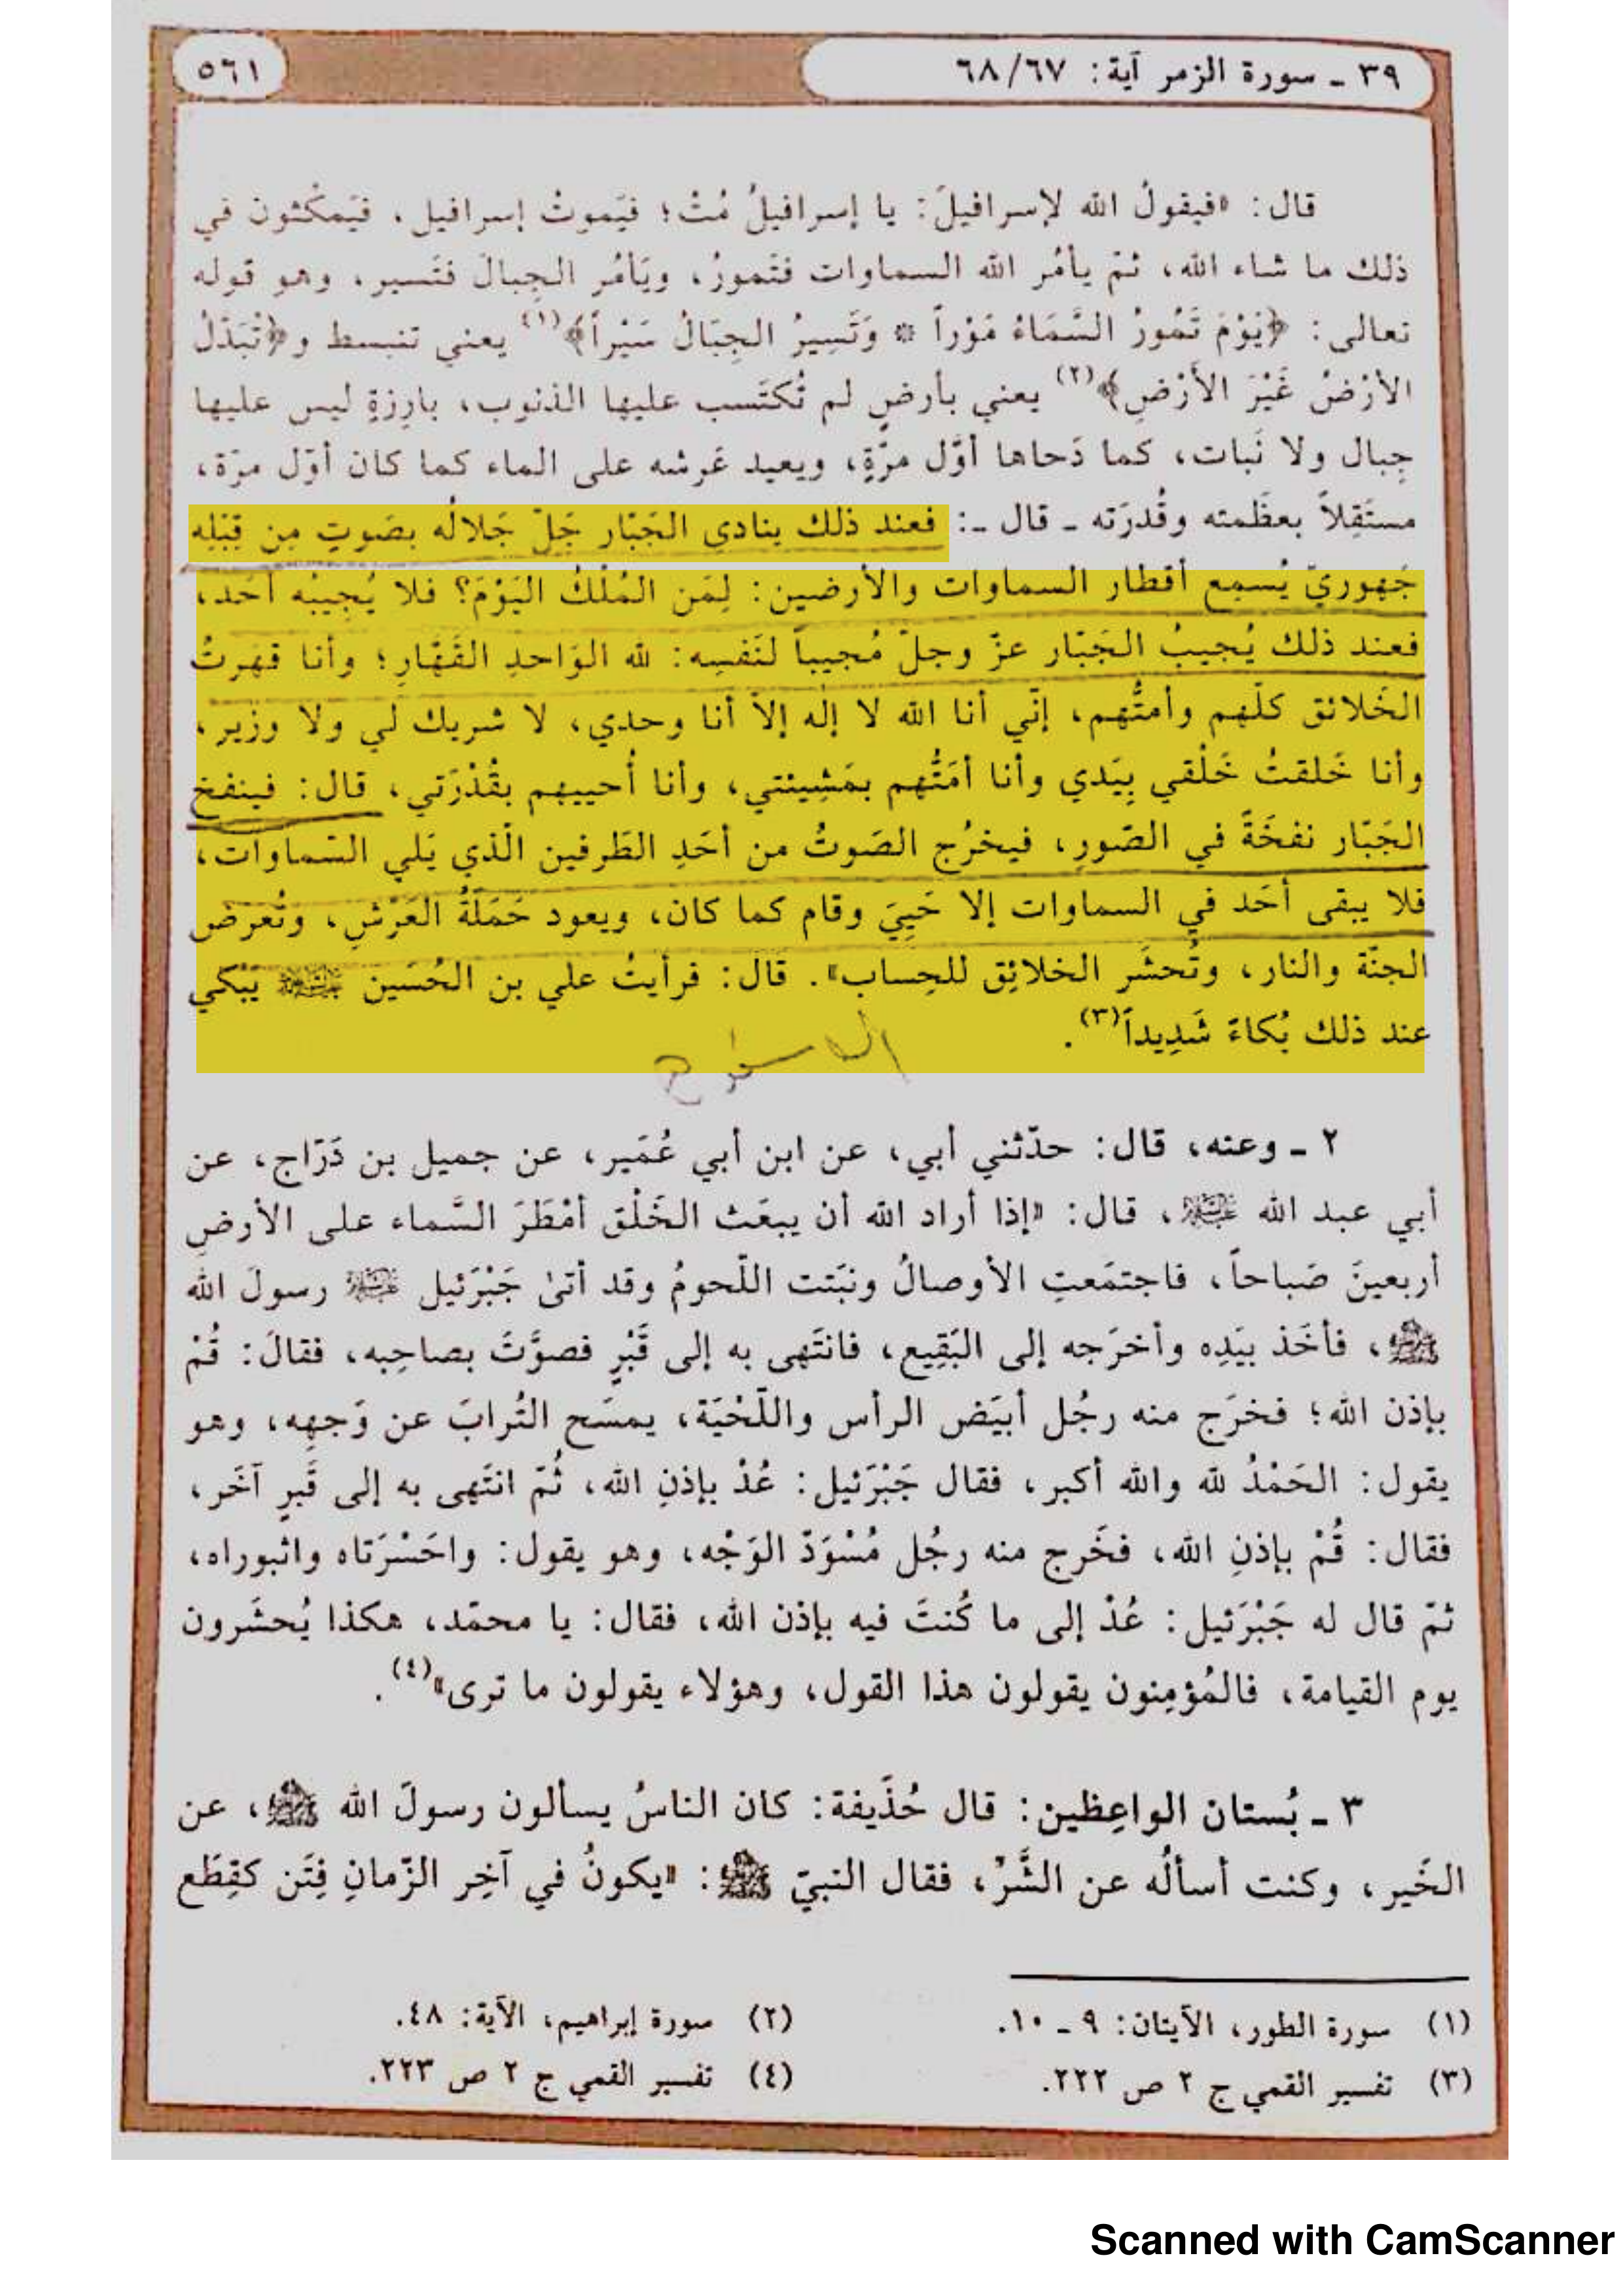 ٣٩ ـ سورة الزمر آية: ٦٨/٦٧
٥٦١
قال: «فيقولُ الله لإسرافيلَ: يا إسرافيلُ مُتْ؛ فيَموتُ إسرافيل، فيَمكُثون في
ذلك ما شاء الله، ثمّ يأمُر الله السماوات فتَمورُ، ويَأمُر الجِبالَ فتَسير، وهو قوله
تعالى: ﴿يَوْمَ تَمُورُ السَّمَاءُ مَوْراً * وَتَسِيرُ الجِبَالُ سَيْراً﴾(١) يعني تنبسط و﴿تُبَدَّلُ
الأرْضُ غَيْرَ الأَرْضِ﴾(٢) يعني بأرضٍ لم تُكتَسب عليها الذنوب، بارِزةٍ ليس عليها
جِبال ولا نَبات، كما دَحاها أوّل مرّةٍ، ويعيد عَرشه على الماء كما كان أوّل مرّة،
مستَقِلاً بعظَمته وقُدرَته ـ قال ـ: فعند ذلك ينادي الجَبّار جَلّ جَلالُه بصَوتٍ مِن قِبَلِه
جَهوريّ يُسمِع أقطار السماوات والأرضين: لِمَن المُلْكُ اليَوْمَ؟ فلا يُجِيبُه أحَد،
فعند ذلك يُجيبُ الجَبّار عزّ وجلّ مُجيباً لنَفسِه: لله الوَاحدِ القَهّارِ؛ وأنا قهَرتُ
الخَلائق كلّهم وأمتُّهم، إنّي أنا الله لا إله إلاّ أنا وحدي، لا شريك لي ولا وزير،
وأنا خَلقتُ خَلْقي بِيَدي وأنا أمَتُّهم بمَشِيئتي، وأنا أُحييهم بقُدْرَتي، قال: فينفخ
الجَبّار نفخَةً في الصّورِ، فيخرُج الصَوتُ من أحَدِ الطَرفين الّذي يَلي السّماوات،
فلا يبقى أحَد في السماوات إلا حَيِيَ وقام كما كان، ويعود حَمَلَةُ العَرْشِ، وتُعرَض
الجنّة والنار، وتُحشَر الخلائِق للحِساب». قال: فرأيتُ علي بن الحُسَين عليه السلام يَبْكي
عند ذلك بُكاءً شَدِيداً(٣).
٢ ـ وعنه، قال: حدّثني أبي، عن ابن أبي عُمَير، عن جميل بن دَرّاج، عن
أبي عبد الله عليه السلام، قال: «إذا أراد الله أن يبعَث الخَلْق أمْطَرَ السَّماء على الأرضِ
أربعينَ صَباحاً، فاجتمَعتِ الأوصالُ ونبَتت اللّحومُ وقد أتىٰ جَبْرَئيل عليه السلام رسولَ الله
ﷺ، فأخَذ بيَدِه وأخرَجه إلى البَقِيع، فانتَهى به إلى قَبْرٍ فصوَّتَ بصاحِبه، فقالَ: قُمْ
بإذن الله؛ فخرَج منه رجُل أبيَض الرأس واللّحْيَة، يمسَح التُرابَ عن وَجهِه، وهو
يقول: الحَمْدُ لله والله أكبر، فقال جَبْرَئيل: عُدْ بإذنِ الله، ثُمّ انتَهى به إلى قَبرٍ آخَر،
فقال: قُمْ بإذنِ الله، فخَرج منه رجُل مُسْوَدّ الوَجْه، وهو يقول: واحَسْرَتاه واثبوراه،
ثمّ قال له جَبْرَئيل: عُدْ إلى ما كُنتَ فيه بإذن الله، فقال: يا محمّد، هكذا يُحشَرون
يوم القيامة، فالمُؤمِنون يقولون هذا القول، وهؤلاء يقولون ما ترى»(٤).
٣ ـ بُستان الواعِظين: قال حُذَيفة: كان الناسُ يسألون رسولَ الله ﷺ، عن
الخَير، وكنت أسألُه عن الشَّرّ، فقال النبيّ ﷺ: «يكونُ في آخِر الزّمانِ فِتَن كقِطَع
(١) سورة الطور، الآيتان: ٩ ـ ١٠.
(٢) سورة إبراهيم، الآية: ٤٨.
(٣) تفسير القمي ج ٢ ص ٢٢٢.
(٤) تفسير القمي ج ٢ ص ٢٢٣.
Scanned with CamScanner